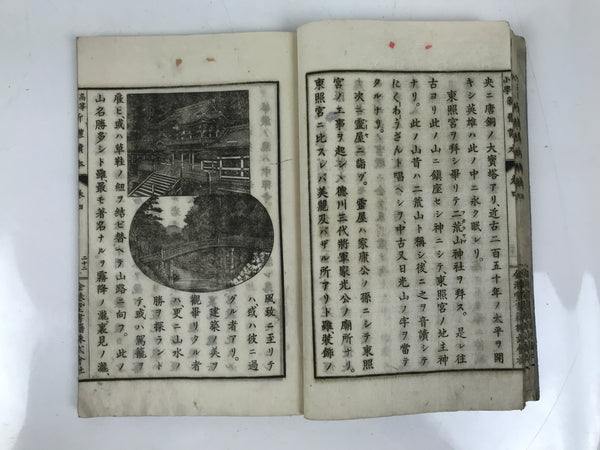 央ニ唐銅ノ大寳塔アリ、近古二百五十年ノ太平ヲ開
キシ英雄ハ此ノ中ニ永ク眠レリ。
東照宮ヲ拜シ畢リテ二荒山神社ヲ拜ス。是レ往
古ヨリ此ノ山ニ鎭座セシ神ニシテ東照宮ノ地主神
ナリ。此ノ山昔ハ二荒山ト稱シ後ニ之ヲ音讀シテ
にくわうざんト唱ヘシヲ、中古又日光山ノ字ヲ當テ
タルナリ。
次ニ靈屋ニ詣ヅ。靈屋ハ家康公ノ孫ニシテ東照
宮ノ工事ヲ起シヽ德川三代將軍家光公ノ廟所ナリ。
東照宮ニ比スレバ美麗及バザル所アリト雖、裝飾ノ
風致ニ至リテ
ハ、或ハ彼ニ過
グル者アリ。
建築ノ美ヲ
觀畢リタル者
ハ更ニ山水ノ
勝ヲ探ラント
テ、或ハ駕籠ヲ
雇ヒ或ハ草鞋ノ紐ヲ結ビ替ヘテ山路ニ向フ。此ノ
山名勝多シト雖、最モ著名ナルヲ霧降ノ瀧、裏見ノ瀧
卷四
二十三